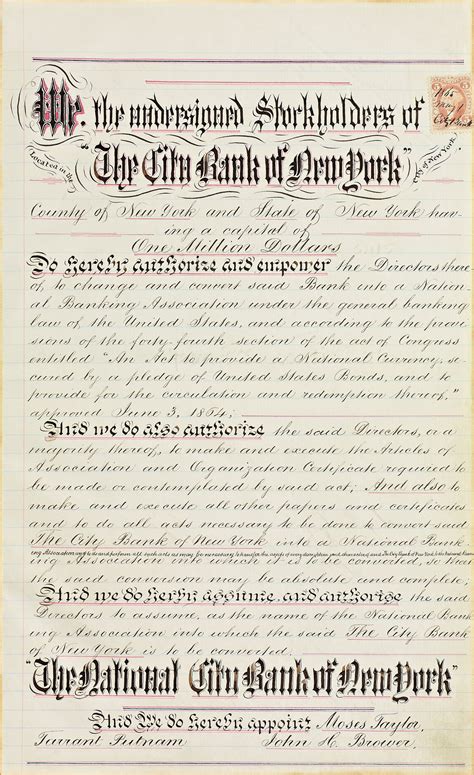 We, the undersigned Stockholders of
Located in the "The City Bank of New York" City of New York,
County of New York and State of New York hav-
ing a capital of
One Million Dollars
Do hereby authorize and empower the Directors there-
of, to change and convert said Bank into a Nation-
al Banking Association under the general banking
law of the United States, and according to the provi-
sions of the forty-fourth section of the act of Congress
entitled "An Act to provide a National Currency, se-
cured by a pledge of United States Bonds, and to
provide for the circulation and redemption thereof,"
approved June 3, 1864;
And we do also authorize the said Directors, or a
majority thereof, to make and execute the Articles of
Association and Organization Certificate required to
be made or contemplated by said act; And also to
make and execute all other papers and certificates
and to do all acts necessary to be done to convert said
The City Bank of New York into a National Bank-
ing Association and to do and perform all such acts as may be necessary to
ing Association into which it is to be converted, so that
the said conversion may be absolute and complete;
And we do hereby assume, and authorise the said
Directors to assume, as the name of the National Bank-
ing Association into which the said The City Bank
of New York is to be converted,
"The National City Bank of New York"
And We do hereby appoint Moses Taylor,
Tarrant Putnam John H. Brower,